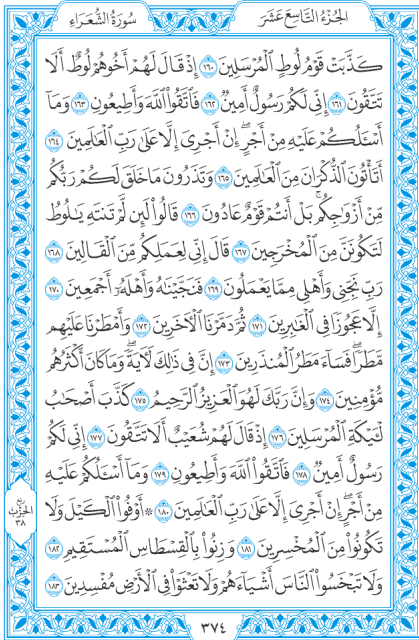 سُورَةُ الشُّعَرَاءِ الجُزْءُ التَّاسِعَ عَشَرَ
كَذَّبَتْ قَوْمُ لُوطٍ الْمُرْسَلِينَ ١٦٠ إِذْ قَالَ لَهُمْ أَخُوهُمْ لُوطٌ أَلَا
تَتَّقُونَ ١٦١ إِنِّي لَكُمْ رَسُولٌ أَمِينٌ ١٦٢ فَاتَّقُوا اللَّهَ وَأَطِيعُونِ ١٦٣ وَمَا
أَسْـَٔلُكُمْ عَلَيْهِ مِنْ أَجْرٍ ۖ إِنْ أَجْرِيَ إِلَّا عَلَىٰ رَبِّ الْعَالَمِينَ ١٦٤
أَتَأْتُونَ الذُّكْرَانَ مِنَ الْعَالَمِينَ ١٦٥ وَتَذَرُونَ مَا خَلَقَ لَكُمْ رَبُّكُم
مِّنْ أَزْوَاجِكُم ۚ بَلْ أَنتُمْ قَوْمٌ عَادُونَ ١٦٦ قَالُوا لَئِن لَّمْ تَنتَهِ يَٰلُوطُ
لَتَكُونَنَّ مِنَ الْمُخْرَجِينَ ١٦٧ قَالَ إِنِّي لِعَمَلِكُم مِّنَ الْقَالِينَ ١٦٨
رَبِّ نَجِّنِي وَأَهْلِي مِمَّا يَعْمَلُونَ ١٦٩ فَنَجَّيْنَٰهُ وَأَهْلَهُۥٓ أَجْمَعِينَ ١٧٠
إِلَّا عَجُوزًا فِي الْغَابِرِينَ ١٧١ ثُمَّ دَمَّرْنَا الْآخَرِينَ ١٧٢ وَأَمْطَرْنَا عَلَيْهِم
مَّطَرًا ۖ فَسَاءَ مَطَرُ الْمُنذَرِينَ ١٧٣ إِنَّ فِي ذَٰلِكَ لَآيَةً ۖ وَمَا كَانَ أَكْثَرُهُم
مُّؤْمِنِينَ ١٧٤ وَإِنَّ رَبَّكَ لَهُوَ الْعَزِيزُ الرَّحِيمُ ١٧٥ كَذَّبَ أَصْحَٰبُ
لْـَٔيْكَةِ الْمُرْسَلِينَ ١٧٦ إِذْ قَالَ لَهُمْ شُعَيْبٌ أَلَا تَتَّقُونَ ١٧٧ إِنِّي لَكُمْ
رَسُولٌ أَمِينٌ ١٧٨ فَاتَّقُوا اللَّهَ وَأَطِيعُونِ ١٧٩ وَمَا أَسْـَٔلُكُمْ عَلَيْهِ
مِنْ أَجْرٍ ۖ إِنْ أَجْرِيَ إِلَّا عَلَىٰ رَبِّ الْعَالَمِينَ ١٨٠ ۞ أَوْفُوا الْكَيْلَ وَلَا
تَكُونُوا مِنَ الْمُخْسِرِينَ ١٨١ وَزِنُوا بِالْقِسْطَاسِ الْمُسْتَقِيمِ ١٨٢
وَلَا تَبْخَسُوا النَّاسَ أَشْيَاءَهُمْ وَلَا تَعْثَوْا فِي الْأَرْضِ مُفْسِدِينَ ١٨٣
ربع
الحزب
٣٨
٣٧٤